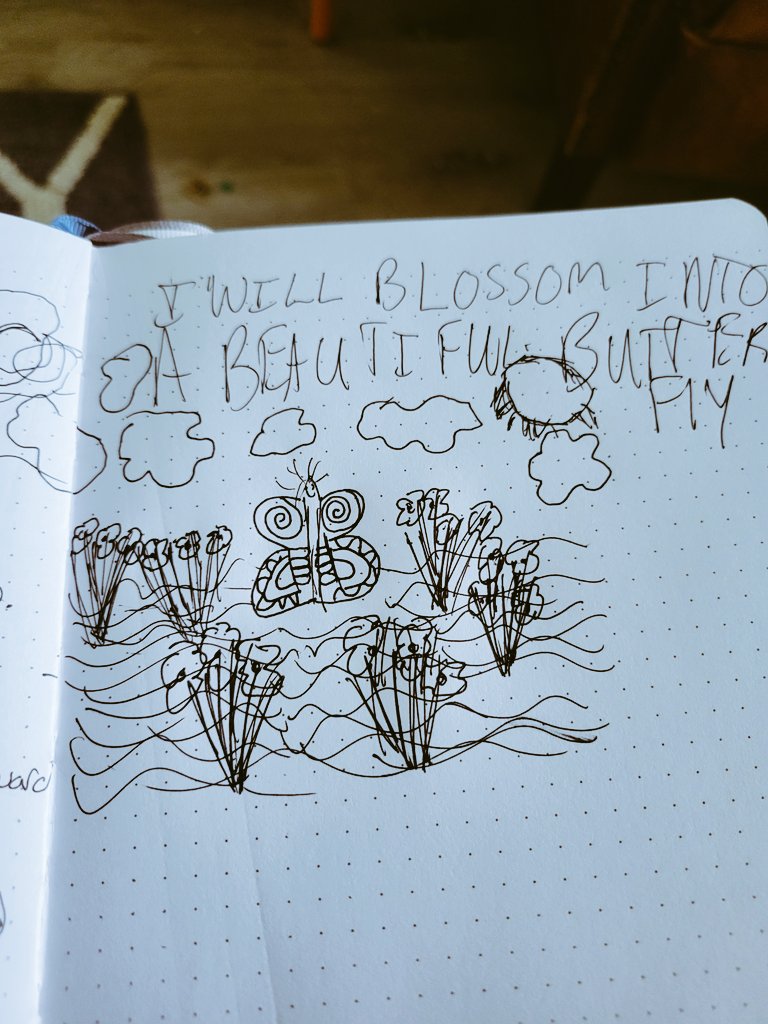 I WILL BLOSSOM INTO
A BEAUTIFUL BUTTER
FLY
ward